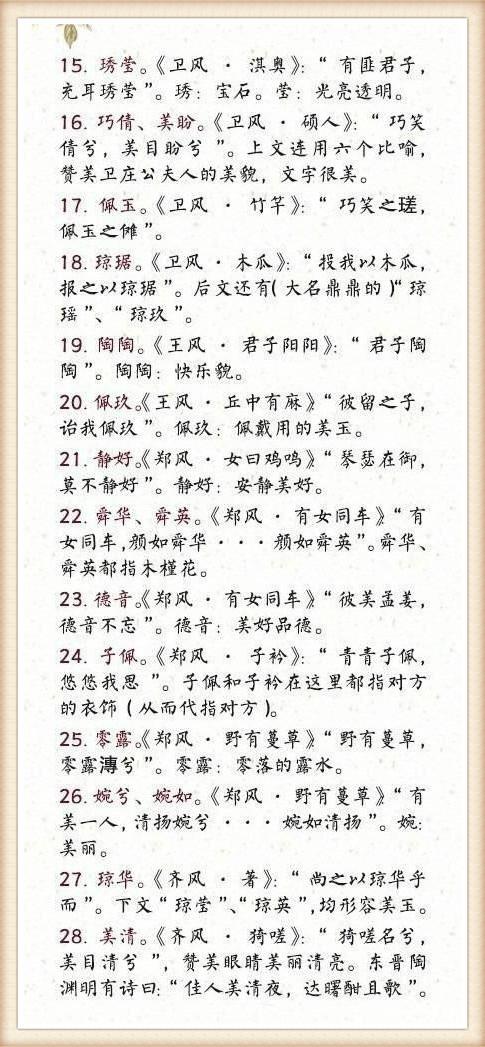 15. 琇莹。《卫风 · 淇奥》：“有匪君子，
充耳琇莹”。琇：宝石。莹：光亮透明。
16. 巧倩、美盼。《卫风 · 硕人》：“巧笑
倩兮，美目盼兮”。上文连用六个比喻，
赞美卫庄公夫人的美貌，文字很美。
17. 佩玉。《卫风 · 竹竿》：“巧笑之瑳，
佩玉之傩”。
18. 琼琚。《卫风 · 木瓜》：“投我以木瓜，
报之以琼琚”。后文还有(大名鼎鼎的)“琼
瑶”、“琼玖”。
19. 陶陶。《王风 · 君子阳阳》：“君子陶
陶”。陶陶：快乐貌。
20. 佩玖。《王风 · 丘中有麻》“彼留之子，
诒我佩玖”。佩玖：佩戴用的美玉。
21. 静好。《郑风 · 女曰鸡鸣》“琴瑟在御，
莫不静好”。静好：安静美好。
22. 舜华、舜英。《郑风 · 有女同车》“有
女同车,颜如舜华 · · · 颜如舜英”。舜华、
舜英都指木槿花。
23. 德音。《郑风 · 有女同车》“彼美孟姜，
德音不忘”。德音：美好品德。
24. 子佩。《郑风 · 子衿》：“青青子佩，
悠悠我思”。子佩和子衿在这里都指对方
的衣饰(从而代指对方)。
25. 零露。《郑风 · 野有蔓草》“野有蔓草，
零露漙兮”。零露：零落的露水。
26. 婉兮、婉如。《郑风 · 野有蔓草》“有
美一人,清扬婉兮 · · · 婉如清扬”。婉：
美丽。
27. 琼华。《齐风 · 著》：“尚之以琼华乎
而”。下文“琼莹”、“琼英”,均形容美玉。
28. 美清。《齐风 · 猗嗟》：“猗嗟名兮，
美目清兮”，赞美眼睛美丽清亮。东晋陶
渊明有诗曰：“佳人美清夜，达曙酣且歌”。